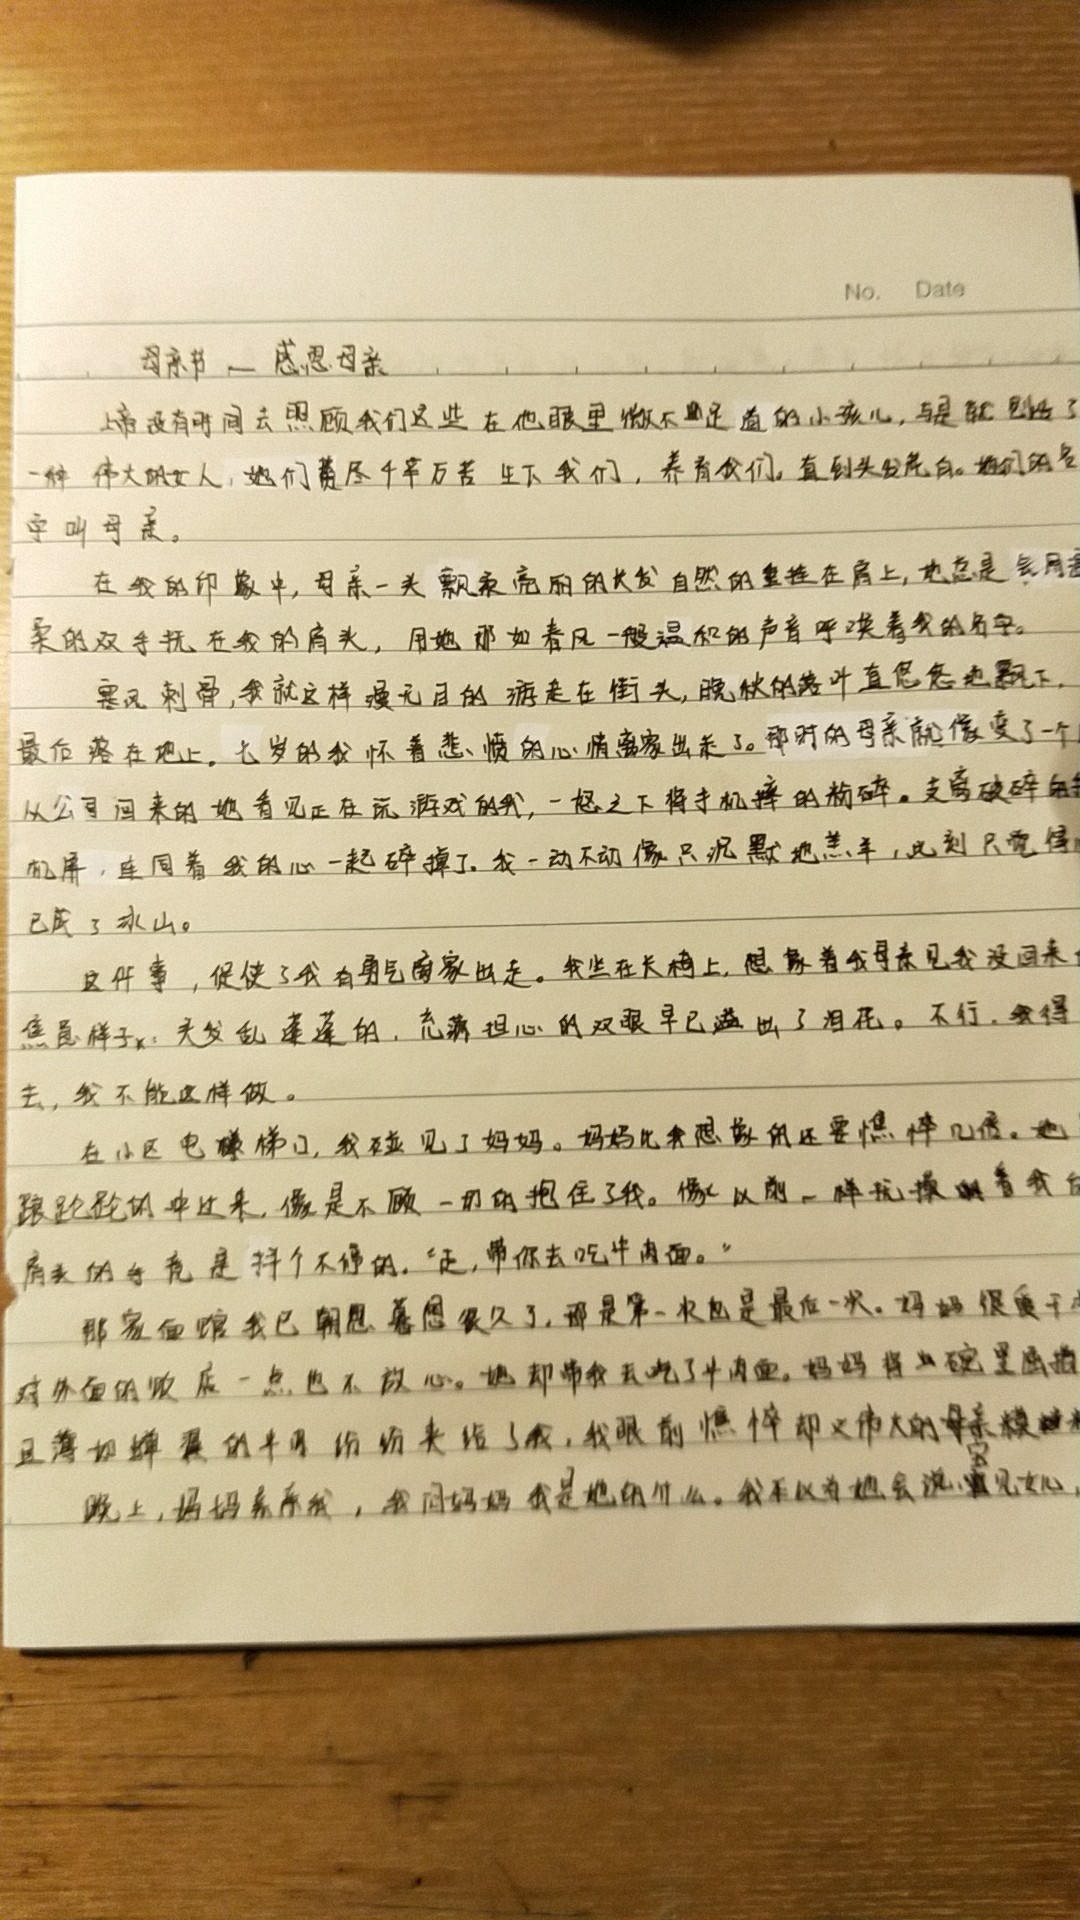 No. Date
母亲节 — 感恩母亲
上帝没有时间去照顾我们这些在他眼里微不足道的小孩儿,于是就创造了
一种伟大的女人,她们费尽千辛万苦生下我们,养育我们。直到头发花白。她们的名
字叫母亲。
在我的印象中,母亲一头飘柔亮丽的长发自然的垂挂在肩上,她总是会用
柔的双手抚在我的肩头,用她那如春风一般温和的声音呼唤着我的名字。
寒风刺骨,我就这样漫无目的游走在街头,晚秋的落叶直悠悠地飘下,
最后落在地上。七岁的我怀着悲愤的心情离家出走了。那时的母亲就像变了一个
从公司回来的她看见正在玩游戏的我,一怒之下将手机摔的粉碎。支离破碎的
机屏,连同着我的心一起碎掉了。我一动不动像只沉默地羔羊,此刻只觉得
已成了冰山。
这件事,促使了我有勇气离家出走。我坐在长椅上,想象着我母亲见我没回来
焦急样子,头发乱蓬蓬的,充满担心的双眼早已溢出了泪花。不行,我得
去,我不能这样做。
在小区电梯口,我碰见了妈妈。妈妈比我想象的还要憔悴几倍。她
踉跄跄的冲过来,像是不顾一切的抱住了我。像以前一样抚摸着我
肩头的手竟是抖个不停的。“走,带你去吃牛肉面。”
那家面馆我已朝思暮想很久了,那是第一次也是最后一次。妈妈很
对外面的饭店一点也不放心。她却带我去吃了牛肉面。妈妈将
且薄如蝉翼的牛肉纷纷夹给了我,我眼前憔悴却又伟大的母亲模
晚上,妈妈亲亲我,我问妈妈我是她的什么。我不以为她会说,宝贝女儿,